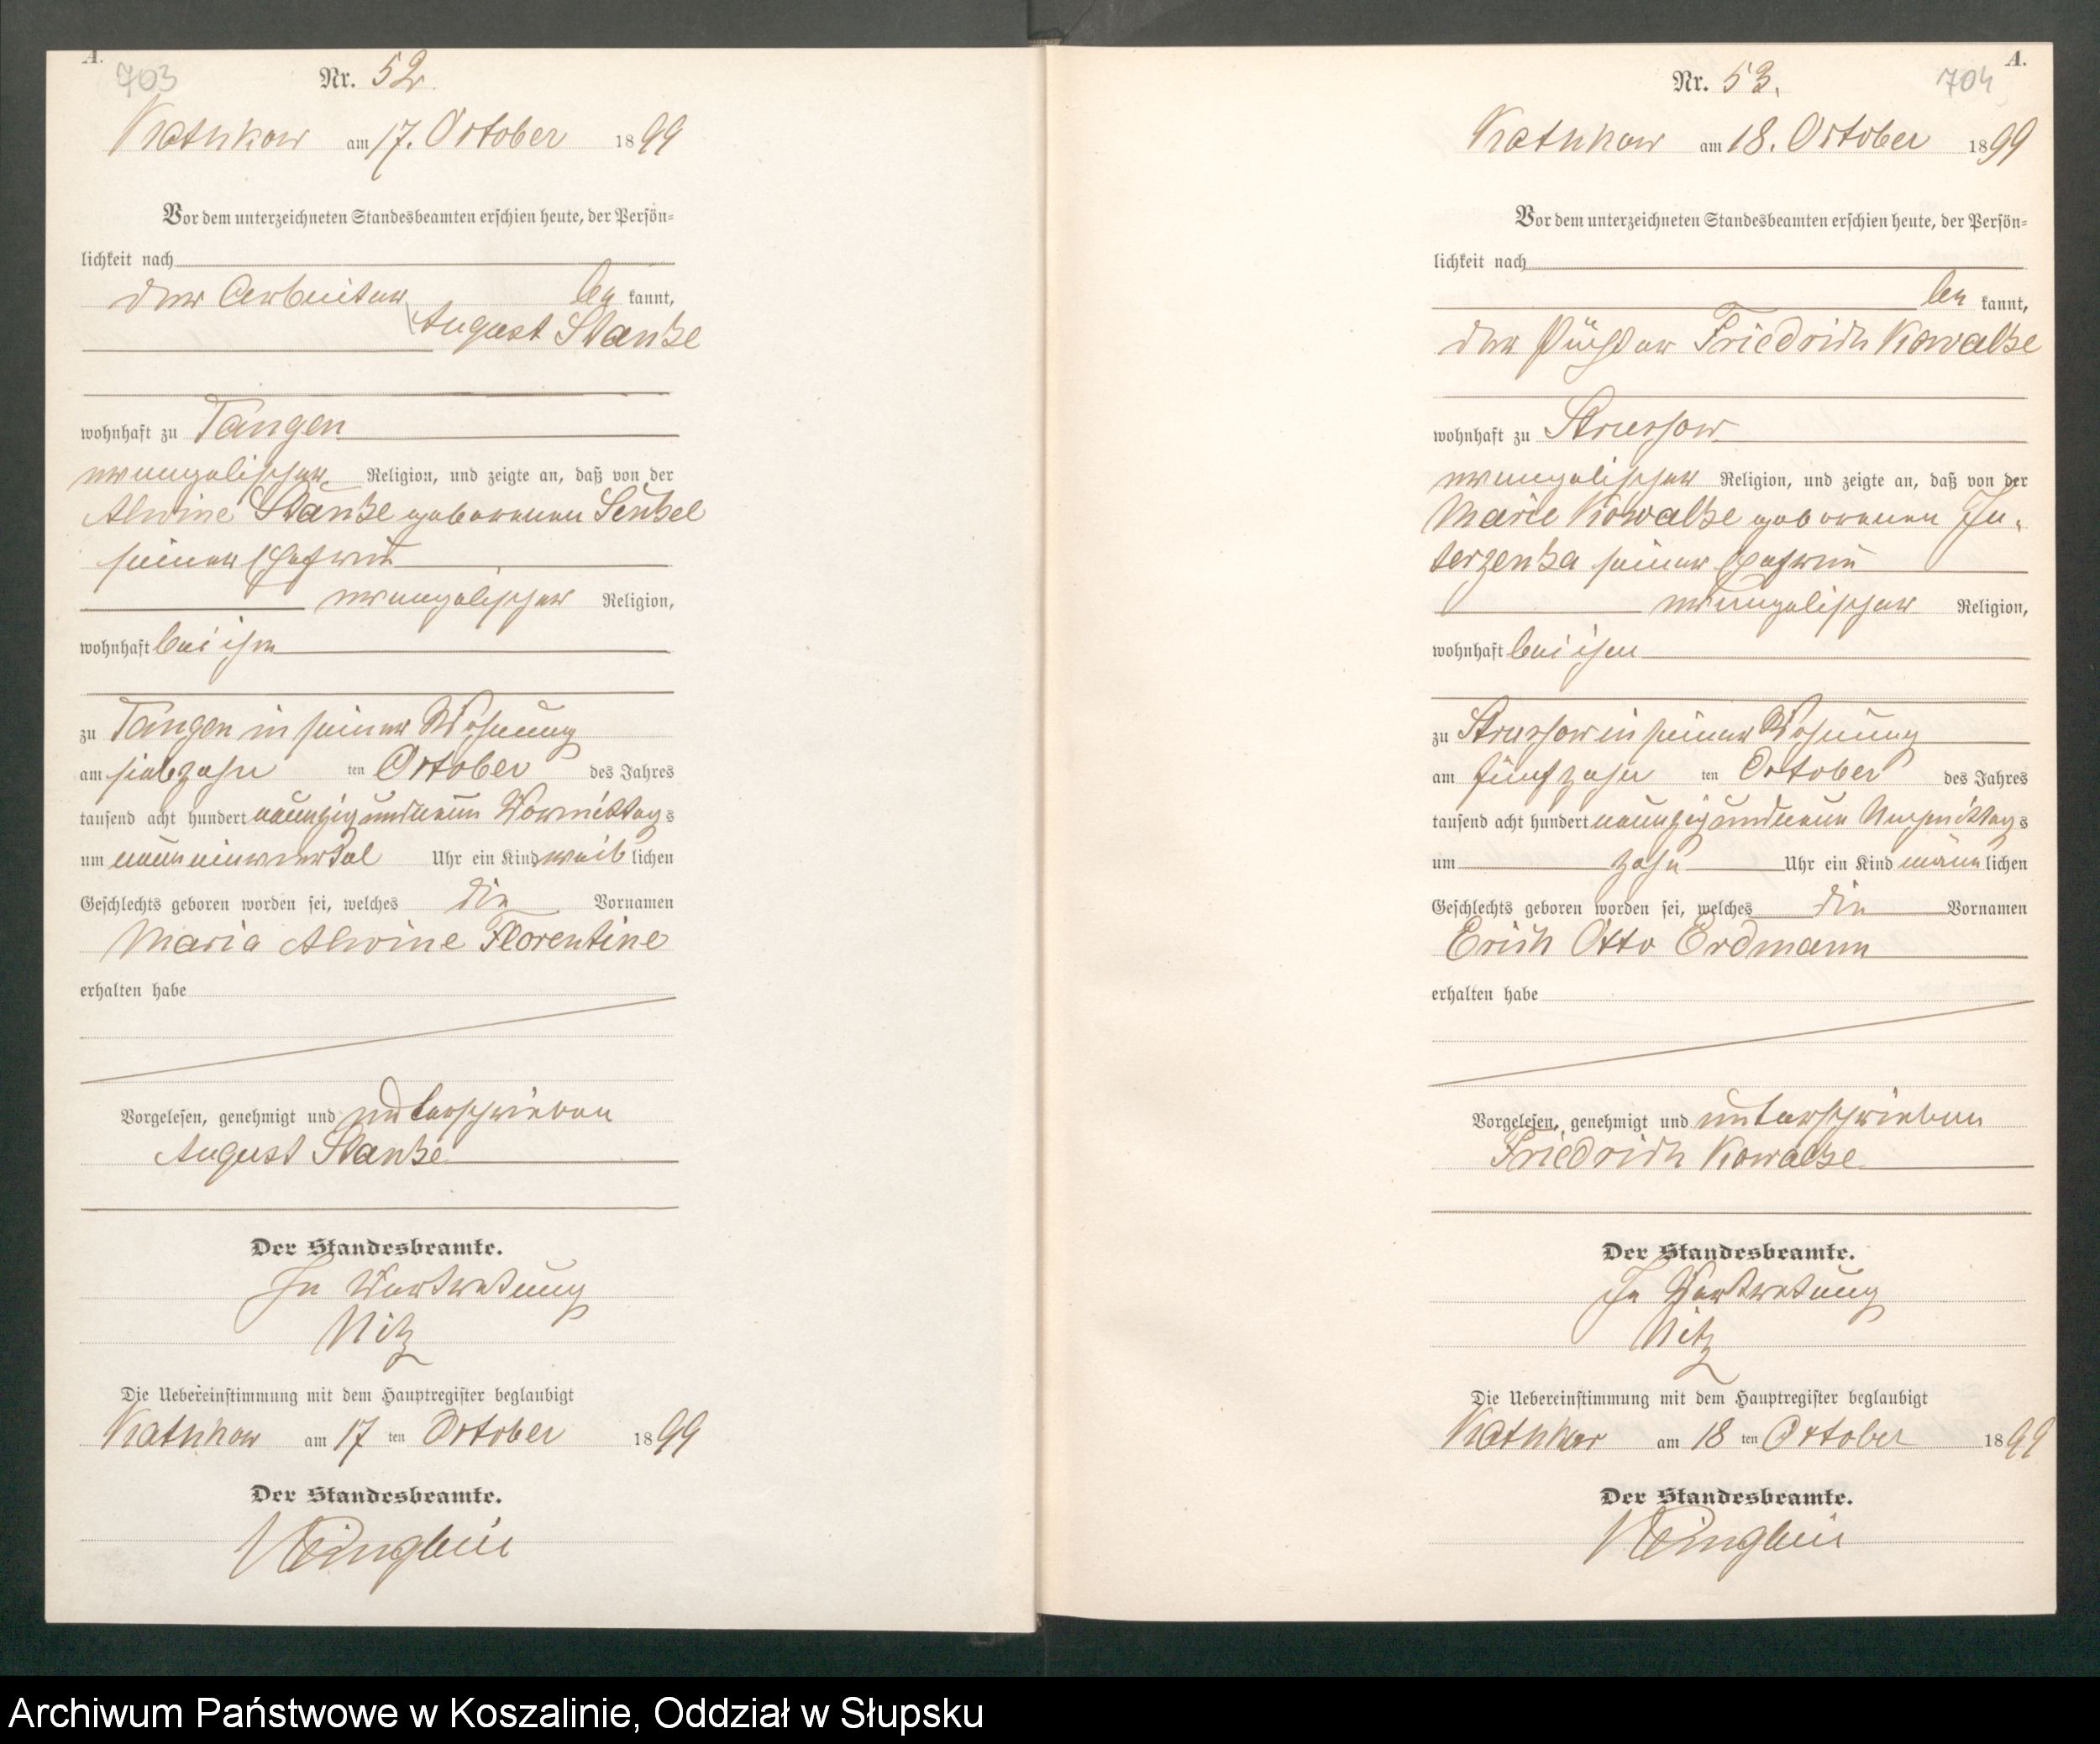 A.
703
Nr. 52.
Kathkow am 17. October 1899
Vor dem unterzeichneten Standesbeamten erschien heute, der Persön-
lichkeit nach
der Arbeiter bekannt,
August Stanke
wohnhaft zu Tangen
evangelischer Religion, und zeigte an, daß von der
Alwine Stanke geborenen
seiner Ehefrau
evangelischer Religion,
wohnhaft bei ihm
zu Tangen in seiner Wohnung
am siebzehnten October des Jahres
tausend acht hundert neunzig und neun Vormittags
um neun einviertel Uhr ein Kind weiblichen
Geschlechts geboren worden sei, welches die Vornamen
Maria Alwine Florentine
erhalten habe
Vorgelesen, genehmigt und unterschrieben
August Stanke
Der Standesbeamte.
In Vertretung
Nitz
Die Uebereinstimmung mit dem Hauptregister beglaubigt
Kathkow am 17ten October 1899
Der Standesbeamte.
A.
Nr. 53.
704
Kathkow am 18. October 1899
Vor dem unterzeichneten Standesbeamten erschien heute, der Persön-
lichkeit nach
bekannt,
der Friedrich Kowalke
wohnhaft zu Strussow
evangelischer Religion, und zeigte an, daß von der
Marie Kowalke geborenen Ju-
terzenka seiner Ehefrau
evangelischer Religion,
wohnhaft bei ihm
zu Strussow in seiner Wohnung
am fünfzehnten October des Jahres
tausend acht hundert neunzig und neun Nachmittags
um zehn Uhr ein Kind männlichen
Geschlechts geboren worden sei, welches die Vornamen
Erich Otto Erdmann
erhalten habe
Vorgelesen, genehmigt und unterschrieben
Friedrich Kowalke
Der Standesbeamte.
In Vertretung
Nitz
Die Uebereinstimmung mit dem Hauptregister beglaubigt
Kathkow am 18ten October 1899
Der Standesbeamte.
Archiwum Państwowe w Koszalinie, Oddział w Słupsku